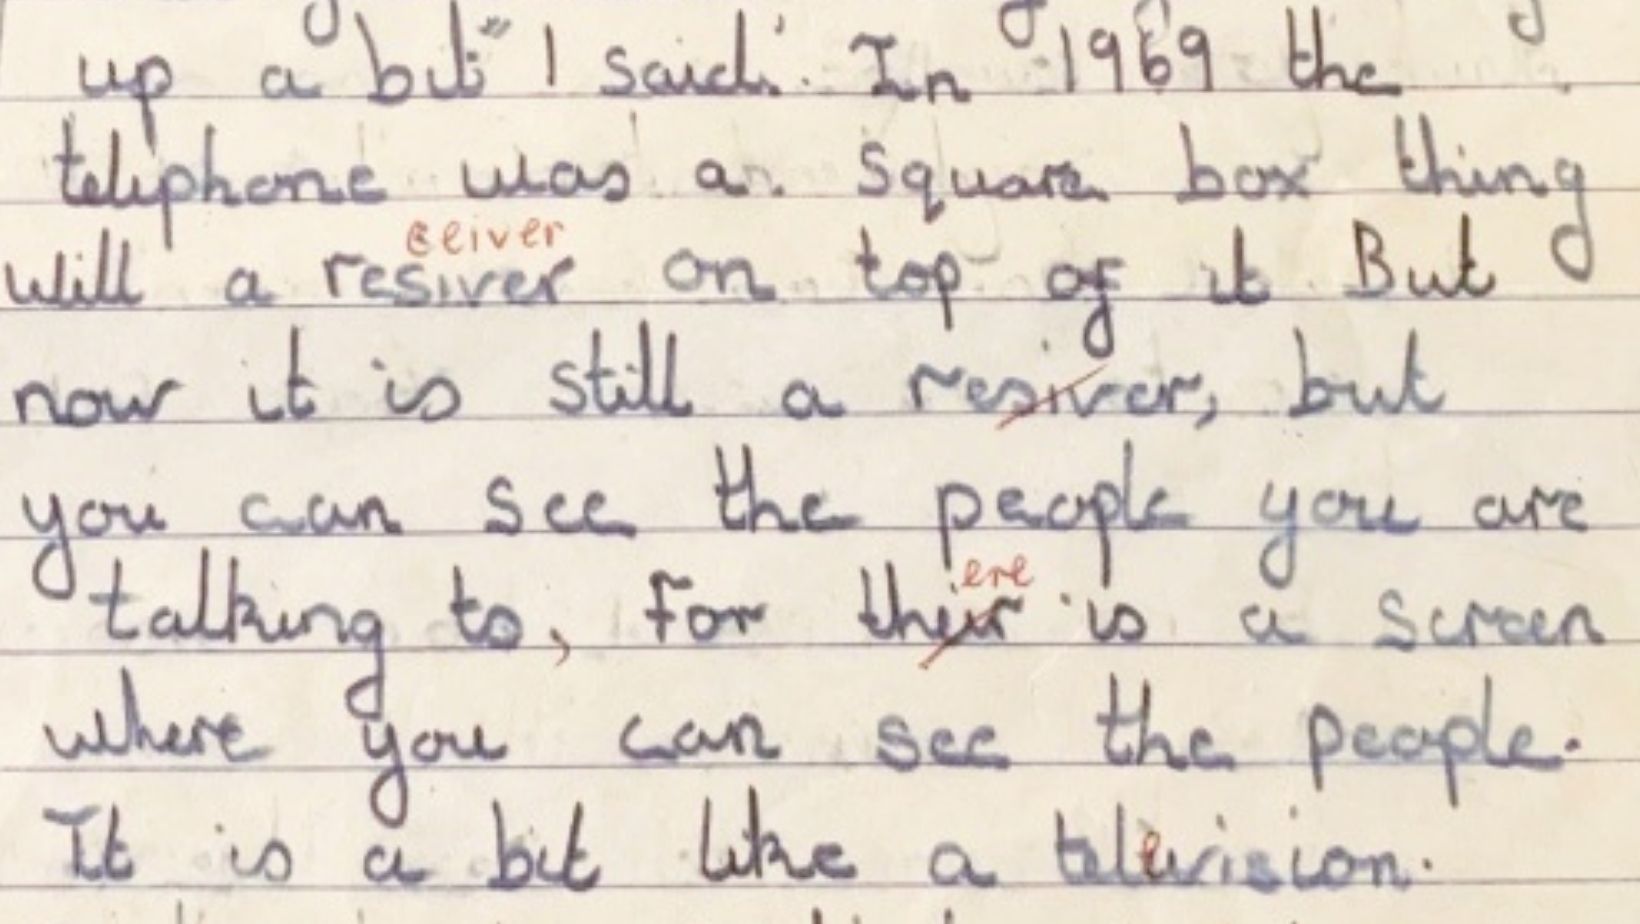 up a bit" I said. In 1969 the
teliphone was a square box thing
ceiver
will a resiver on top of it But
now it is still a resiver, but
you can see the people you are
ere
talking to, For their is a screen
where you can see the people.
It is a bit like a television.